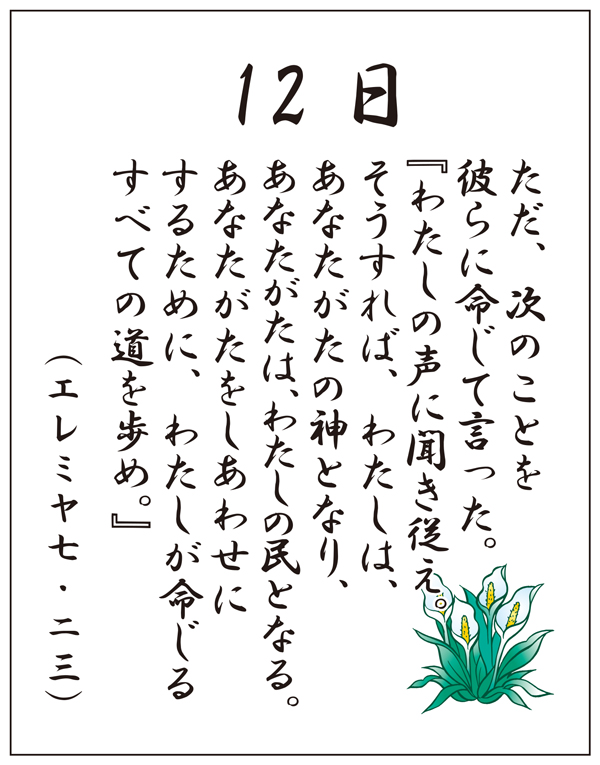 12日
ただ、次のことを
彼らに命じて言った。
『わたしの声に聞き従え。
そうすれば、わたしは、
あなたがたの神となり、
あなたがたは、わたしの民となる。
あなたがたをしあわせに
するために、わたしが命じる
すべての道を歩め。』
（エレミヤ七・二三）